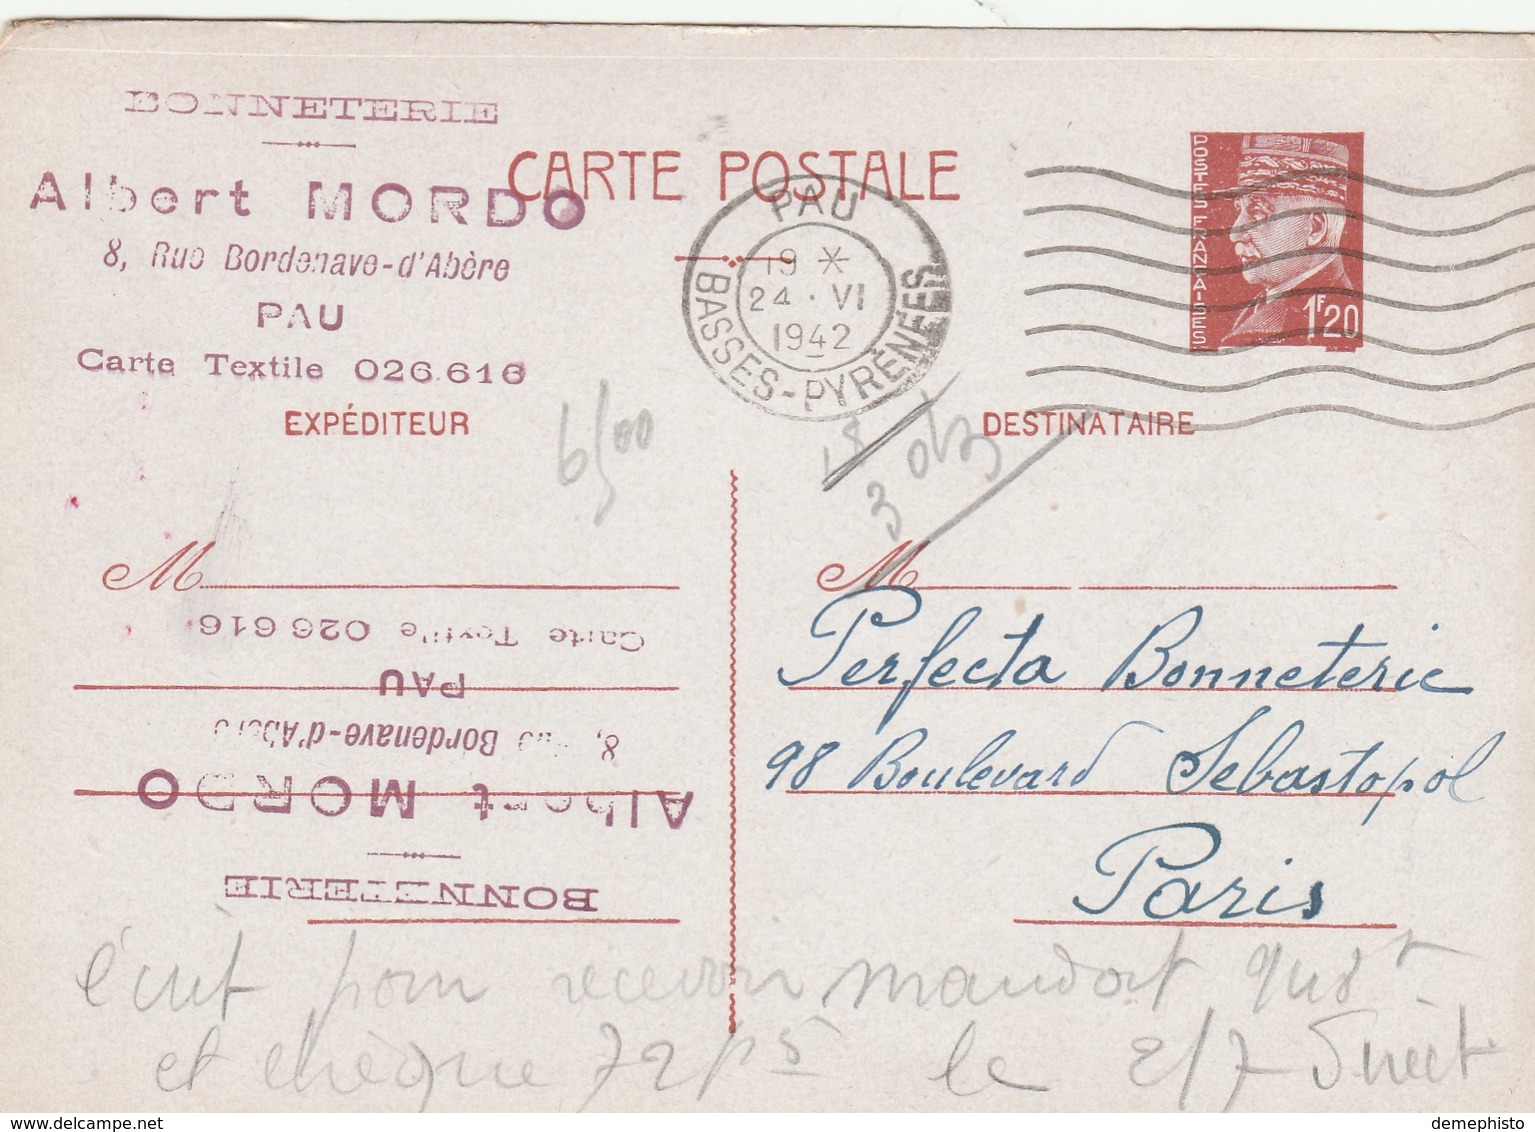 BONNETERIE
Albert MORDO
8, Rue Bordenave-d'Abère
PAU
Carte Textile 026.616
CARTE POSTALE
PAU
19 *
24 · VI
1942
BASSES-PYRÉNÉES
POSTES FRANÇAISES
1F20
EXPÉDITEUR
DESTINATAIRE
6/00
3
M
M
Carte Textile 026 616
PAU
8, Rue Bordenave-d'Abère
Albert MORDO
BONNETERIE
Perfecta Bonneterie
98 Boulevard Sebastopol
Paris
écrit pour recevoir mandat
et chèque le 2/7
demephisto